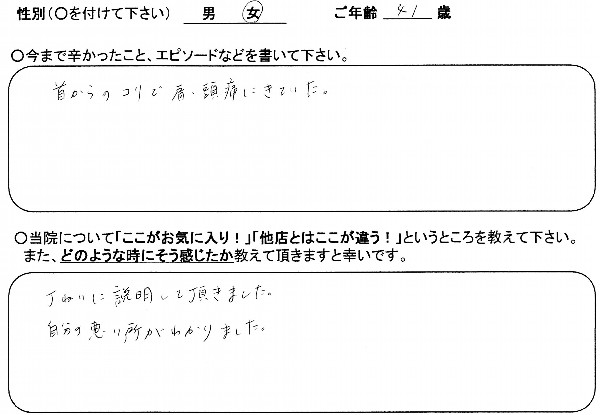 性別(○を付けて下さい) 男 女 ご年齢 41 歳
○今まで辛かったこと、エピソードなどを書いて下さい。
首からのコリで肩、頭痛にきていた。
○当院について「ここがお気に入り!」「他店とはここが違う!」というところを教えて下さい。
また、どのような時にそう感じたか教えて頂きますと幸いです。
丁ねいに説明して頂きました。
自分の悪い所がわかりました。